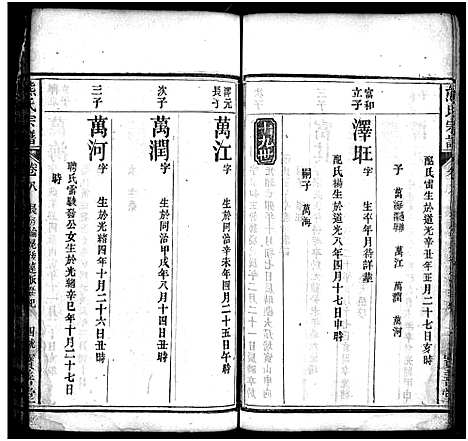 熊氏宗譜
配氏雷生於道光辛丑年正月二十七日亥時
子 萬海 萬江 萬潤 萬河
富和立子
澤旺 字 生卒年月待詳葬
配氏楊生於道光八年四月十七日申時
嗣子 萬海
澤元長子
萬江 字 生於同治辛未年四月二十五日午時
次子
萬潤 字 生於同治甲戌年八月十四日丑時
三子
萬河 字 生於光緒四年十月二十六日丑時
聘氏雷駿發公女生於光緒辛巳年十月二十七日
時
熊氏宗譜 卷八